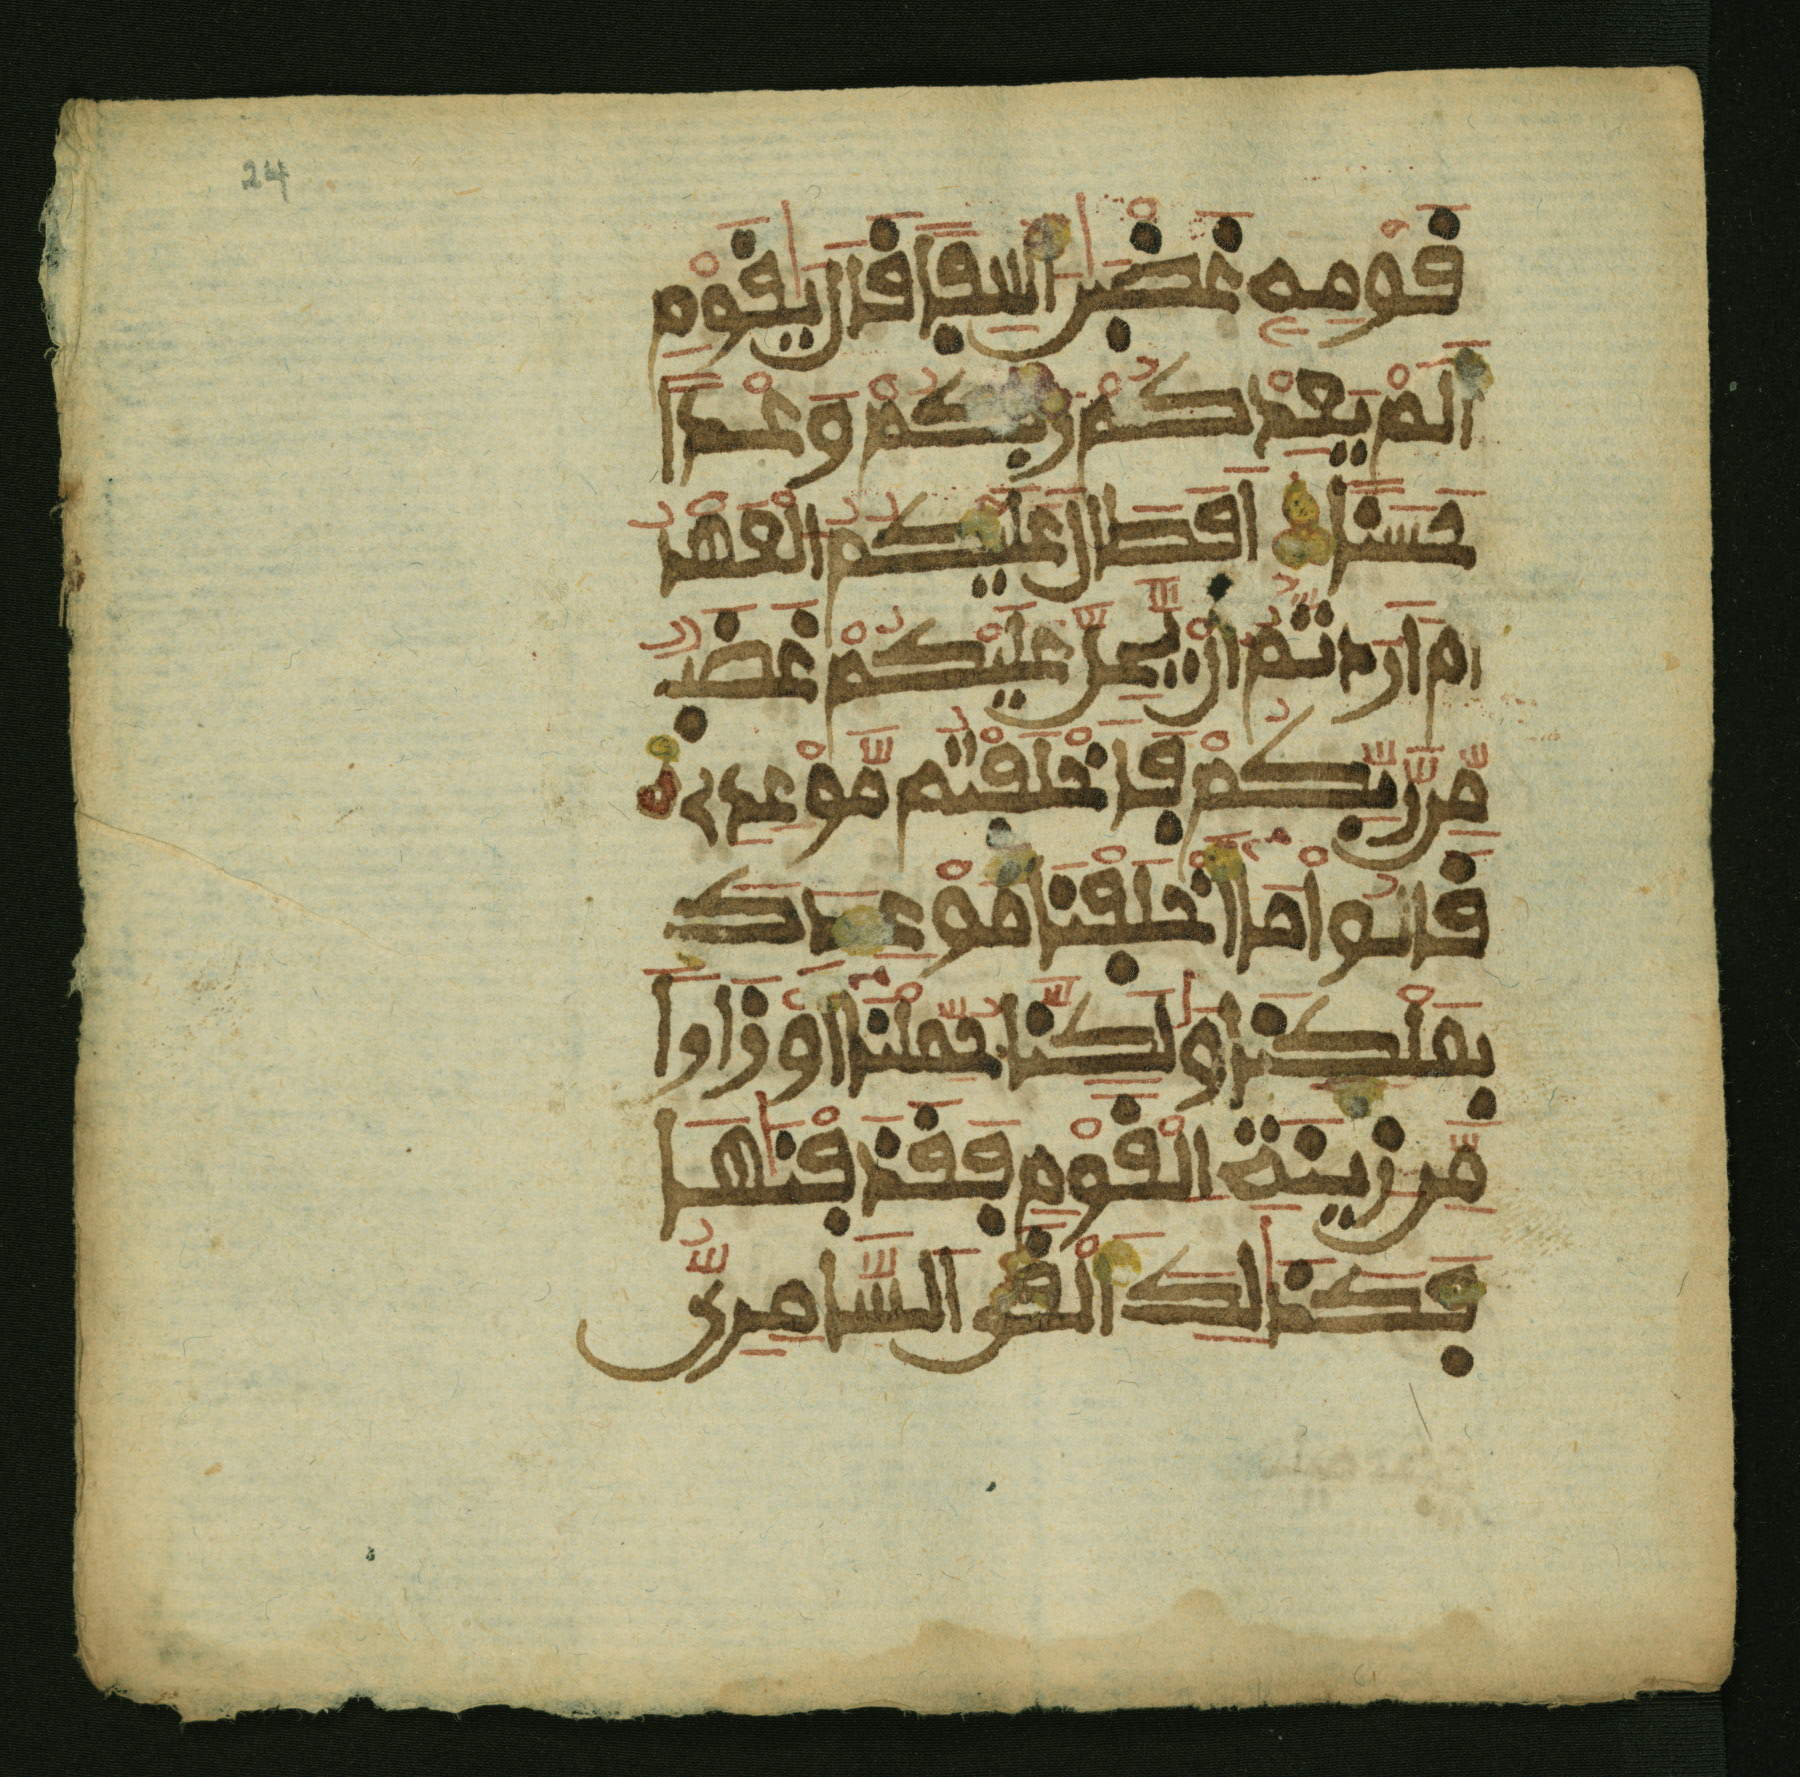 24
قَوْمِهِۦ غَضْبَٰنَ أَسِفًا قَالَ يَٰقَوْمِ
أَلَمْ يَعِدْكُمْ رَبُّكُمْ وَعْدًا
حَسَنًا أَفَطَالَ عَلَيْكُمُ الْعَهْدُ
أَمْ أَرَدتُّمُ أَنْ يَّحِلَّ عَلَيْكُمْ غَضَبٌ
مِّن رَّبِّكُمْ فَأَخْلَفْتُم مَّوْعِدِى
قَالُوا مَا أَخْلَفْنَا مَوْعِدَكَ
بِمَلْكِنَا وَلَٰكِنَّا حُمِّلْنَا أَوْزَارًا
مِّن زِينَةِ الْقَوْمِ فَقَذَفْنَٰهَا
فَكَذَٰلِكَ أَلْقَى السَّامِرِىُّ